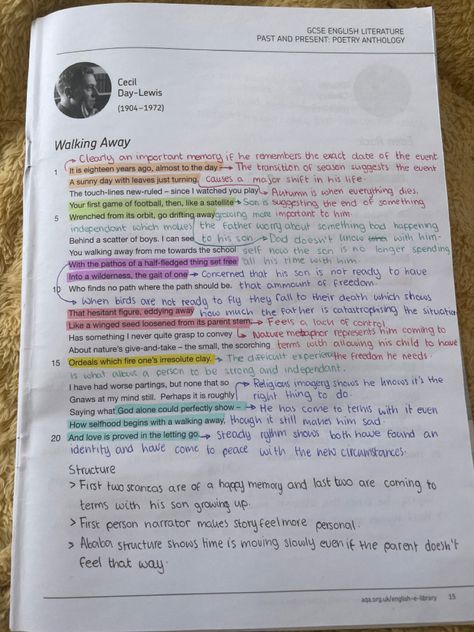 GCSE ENGLISH LITERATURE
PAST AND PRESENT: POETRY ANTHOLOGY
Cecil
Day-Lewis
(1904–1972)
Walking Away
Clearly an important memory if he remembers the exact date of the event
1 It is eighteen years ago, almost to the day – The transition of season suggests the event
A sunny day with leaves just turning, causes a major shift in his life.
The touch-lines new-ruled – since I watched you play Autumn is when everything dies,
Your first game of football, then, like a satellite Son is suggesting the end of something
5 Wrenched from its orbit, go drifting away growing more important to him
independent which makes the father worry about something bad happening
Behind a scatter of boys. I can see to his son Dad doesn't know with him
You walking away from me towards the school self now the son is no longer spending
With the pathos of a half-fledged thing set free all his time with him
Into a wilderness, the gait of one Concerned that his son is not ready to have
10 Who finds no path where the path should be. that ammount of freedom.
When birds are not ready to fly they fall to their death which shows
That hesitant figure, eddying away how much the father is catastrophising the situation
Like a winged seed loosened from its parent stem, Feels a lack of control
Has something I never quite grasp to convey Nature metaphor represents him coming to
About nature's give-and-take – the small, the scorching terms with allowing his child to have
15 Ordeals which fire one's irresolute clay. The difficult experience the freedom he needs
is what allows a person to be strong and independant.
I have had worse partings, but none that so Religious imagery shows he knows it's the
Gnaws at my mind still. Perhaps it is roughly right thing to do.
Saying what God alone could perfectly show – He has come to terms with it even
How selfhood begins with a walking away, though it still makes him sad.
20 And love is proved in the letting go. Steady rythm shows both have found an
identity and have come to peace with the new circumstances.
Structure
> First two stanzas are of a happy memory and last two are coming to
terms with his son growing up.
> First person narrator makes story feel more personal.
> Ababa structure shows time is moving slowly even if the parent doesn't
feel that way.
aqa.org.uk/english-e-library 15